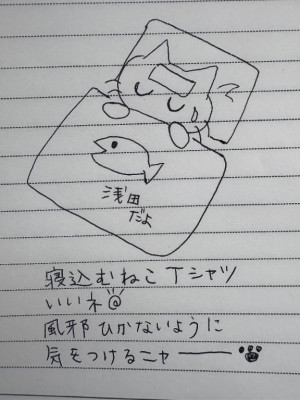 浅田
だよ
寝込むねこTシャツ
いいネ@
風邪ひかないように
気をつけるニャー